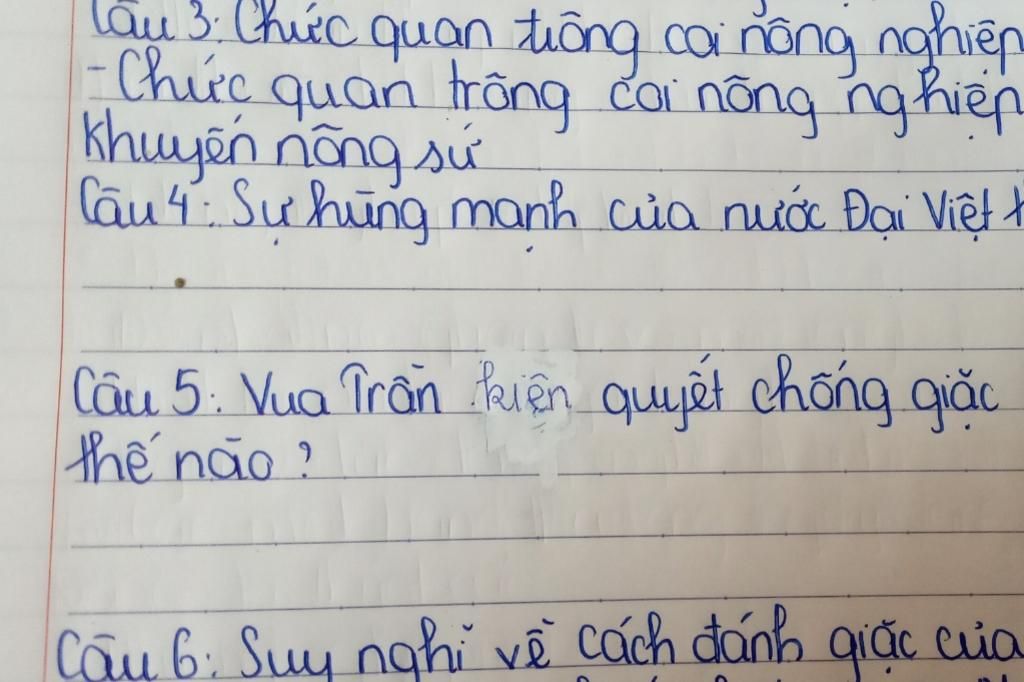 Câu 3: Chức quan trông coi nông nghiệp
- Chức quan trông coi nông nghiệp
Khuyến nông sứ
Câu 4: Sự hùng mạnh của nước Đại Việt
Câu 5: Vua Trần kiện quyết chống giặc
thế nào?
Câu 6: Suy nghĩ về cách đánh giặc của